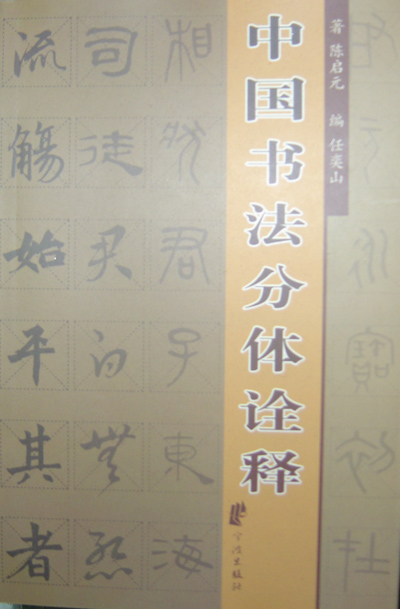 著 陈启元 编 任奕山
中国书法分体诠释
宁波出版社
相 君子東海
司徒
流觴始平其者